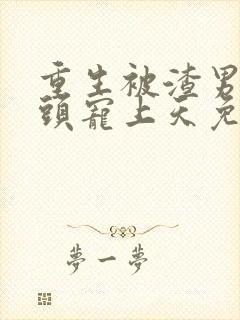 重生被渣男
頭寵上天免
夢一夢